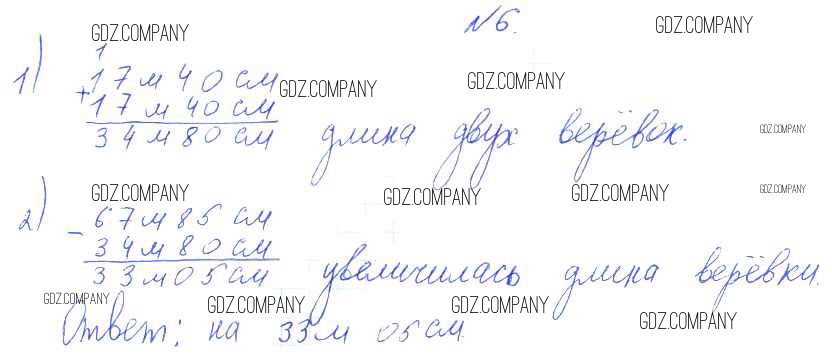 N6.
GDZ.COMPANY GDZ.COMPANY
1
1) 17 м 40 см GDZ.COMPANY GDZ.COMPANY
+ 17 м 40 см
34 м 80 см длина двух верёвок. GDZ.COMPANY
GDZ.COMPANY GDZ.COMPANY GDZ.COMPANY GDZ.COMPANY
2) 67 м 85 см
- 34 м 80 см
33 м 05 см увеличилась длина верёвки.
GDZ.COMPANY GDZ.COMPANY GDZ.COMPANY GDZ.COMPANY
Ответ: на 33 м 05 см